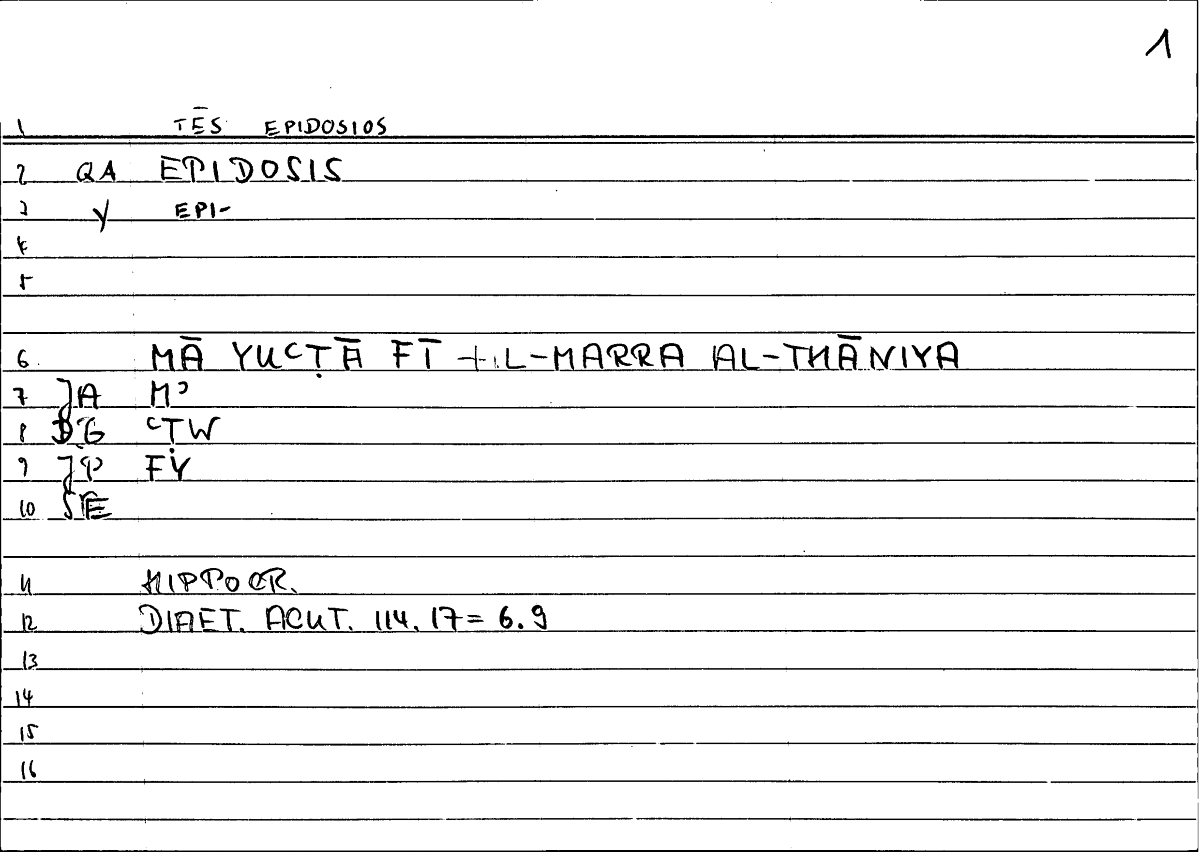 1
1 TĒS EPIDOSIOS
2 QA EPIDOSIS
3 Y EPI-
4
5
6 MĀ YUʿṬĀ FĪ + L-MARRA AL-THĀNIYA
7 JA Mʾ
8 ʿṬW
9 JP FY
10
11 HIPPOCR.
12 DIAET. ACUT. 114.17 = 6.9
13
14
15
16